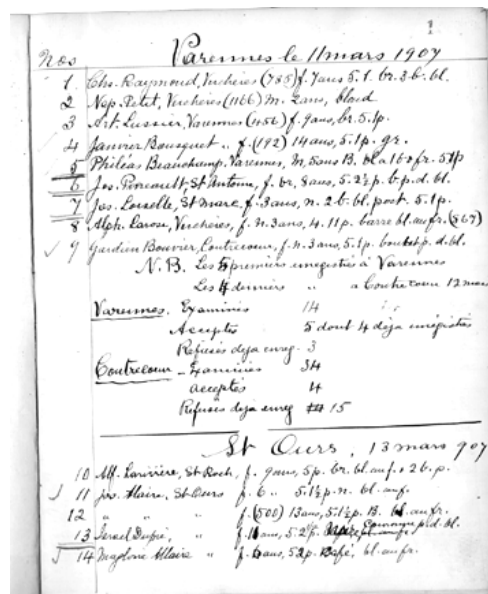 1
Nos Varennes le 11 mars 1907
1. Chs. Raymond, Verchères (785) f. 7 ans 5.1. br. 3 b. bl.
2 Nap. Petit, Verchères (1166) m. 2 ans, bloud
3 Art. Lussier, Varennes (456) f. 9 ans, br. 5.1p.
4 Janvier Bousquet " f. (172) 14 ans, 5.1p. gr.
5 Philéas Beauchamp, Varennes, M. 5 ans B. fr. 5.1p
6 Jos. St Antoine, f. br, 8 ans, 5.2½p. b.p.d. bl.
7 Jos. Loiselle, St Marc, f. 3 ans, n. 2 b. bl. post. 5.1p.
8 Alph. Larose, Verchères, f. n. 3 ans, 4.11p. barre bl. au fr. (567)
9 Gardien Bouvier, Contrecoeur, f. n. 3 ans, 5.1p. boulet p. d. bl.
N.B. Les 5 premiers enregistrés à Varennes
Les 4 derniers " a Contrecoeur 12 mars
Varennes. Examinés 14
Acceptés 5 dont 4 déja enrégistrés
Refusés deja enreg. 3
Contrecoeur - Examinés 34
acceptés 4
Refusés deja enreg 15
St Ours, 13 mars 907
10 Alf. Larivière, St Roch, f. 9 ans, 5p. br. bl. au f. 2 b. p.
11 Jos. Alaire, St Ours f. 6 " 5.1½p. n. bl. au f.
12 " " f. (500) 13 ans, 5.1½p. B. bl. au fr.
13 Israel Dupré, " f. ans, 5.2p. p.d. bl.
14 Magloire Allaire " f. ans, 5.2p. Café, bl. au fr.